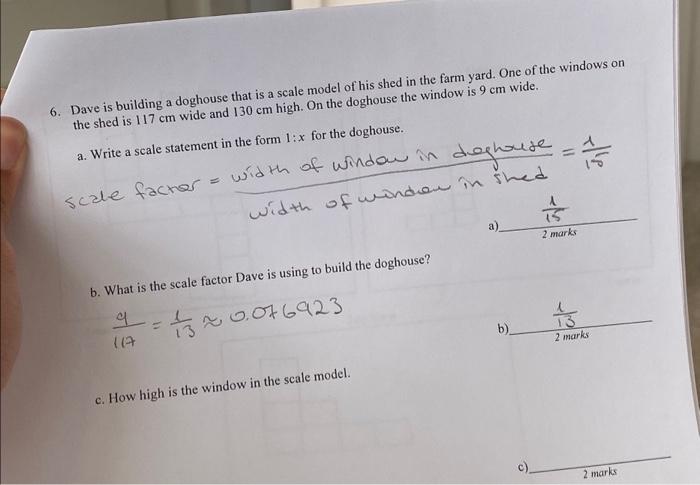 6. Dave is building a doghouse that is a scale model of his shed in the farm yard. One of the windows on
the shed is 117 cm wide and 130 cm high. On the doghouse the window is 9 cm wide.
a. Write a scale statement in the form 1:x for the doghouse.
scale factor = width of window in doghouse / width of window in shed = 1/15
a) 1/15
2 marks
b. What is the scale factor Dave is using to build the doghouse?
9/117 = 1/13 ≈ 0.076923
b) 1/13
2 marks
c. How high is the window in the scale model.
c)
2 marks